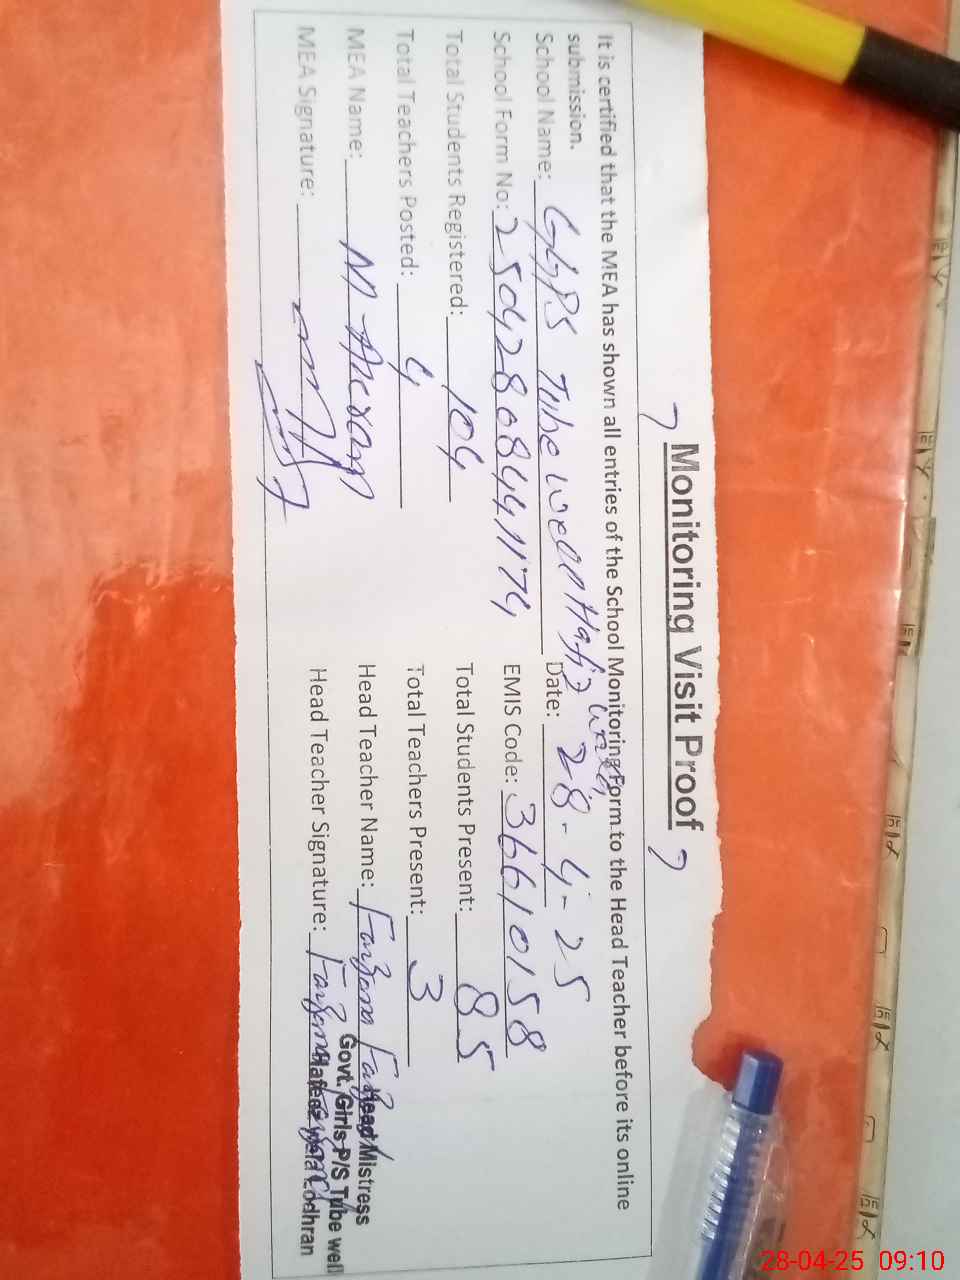 Monitoring Visit Proof
It is certified that the MEA has shown all entries of the School Monitoring Form to the Head Teacher before its online
submission.
School Name: GGPS Tube well Hafiz wala Date: 28-4-25
School Form No: 25042808441174 EMIS Code: 36610158
Total Students Registered: 104 Total Students Present: 85
Total Teachers Posted: 4 Total Teachers Present: 3
MEA Name: M Akram Head Teacher Name: Farzana
MEA Signature: Head Teacher Signature: Farzana
Head Mistress
Govt. Girls P/S Tube well
Hafeez Wala Lodhran
28-04-25 09:10